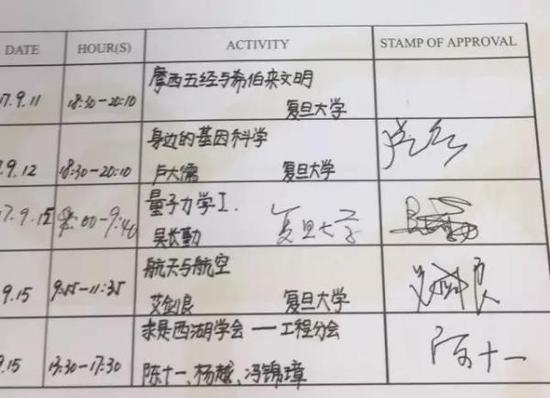 DATE HOUR(S) ACTIVITY STAMP OF APPROVAL
7.9.11 18:30-20:10 摩西五经与希伯来文明
复旦大学
9.12 18:30-20:10 身边的基因科学
卢大儒 复旦大学
17.9.15 8:00-9:40 量子力学I.
吴长勤 复旦大学
9.15 9:55-11:35 航天与航空
艾剑良 复旦大学
9.15 13:30-17:30 求是西湖学会 — 工程分会
陈十一、杨越、冯锦璋 陈十一